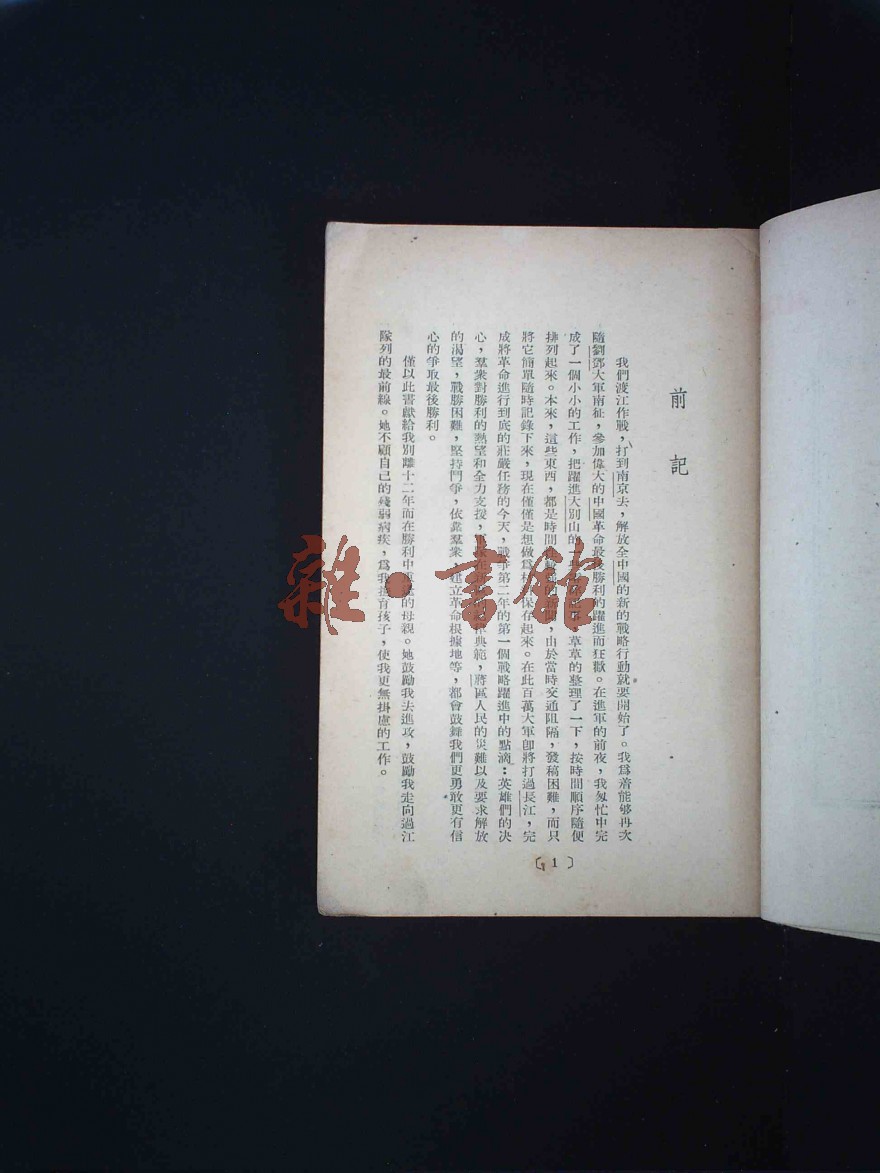 前記
我們渡江作戰，打到南京去，解放全中國的新的戰略行動就要開始了。我爲着能够再次
隨劉鄧大軍南征，參加偉大的中國革命最後勝利的躍進而狂歡。在進軍的前夜，我匆忙中完
成了一個小小的工作，把躍進大別山的一草草的整理了一下，按時間順序隨便
排列起來。本來，這些東西，都是時間由於當時交通阻隔，發稿困難，而只
將它簡單隨時記錄下來，現在僅僅是想做爲保存起來。在此百萬大軍卽將打過長江，完
成將革命進行到底的莊嚴任務的今天，戰爭第二年的第一個戰略躍進中的點滴：英雄們的决
心，羣衆對勝利的熱望和全力支援，典範，蔣區人民的災難以及要求解放
的渴望，戰勝困難，堅持鬥爭，依靠羣衆建立革命根據地等，都會鼓舞我們更勇敢更有信
心的爭取最後勝利。
僅以此書獻給我別離十二年而在勝利中的母親。她鼓勵我去進攻，鼓勵我走向過江
隊列的最前線。她不顧自己的殘弱病疾，爲我育孩子，使我更無掛慮的工作。
〔1〕
雜·書館